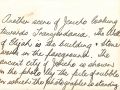 Another scene of Jericho looking
towards Transjordania. The Well
of Elijah is the building & stone
work in the foreground. The
ancient city of Jericho is shown
in the photo by the pile of rubble
on which the photographer is standing